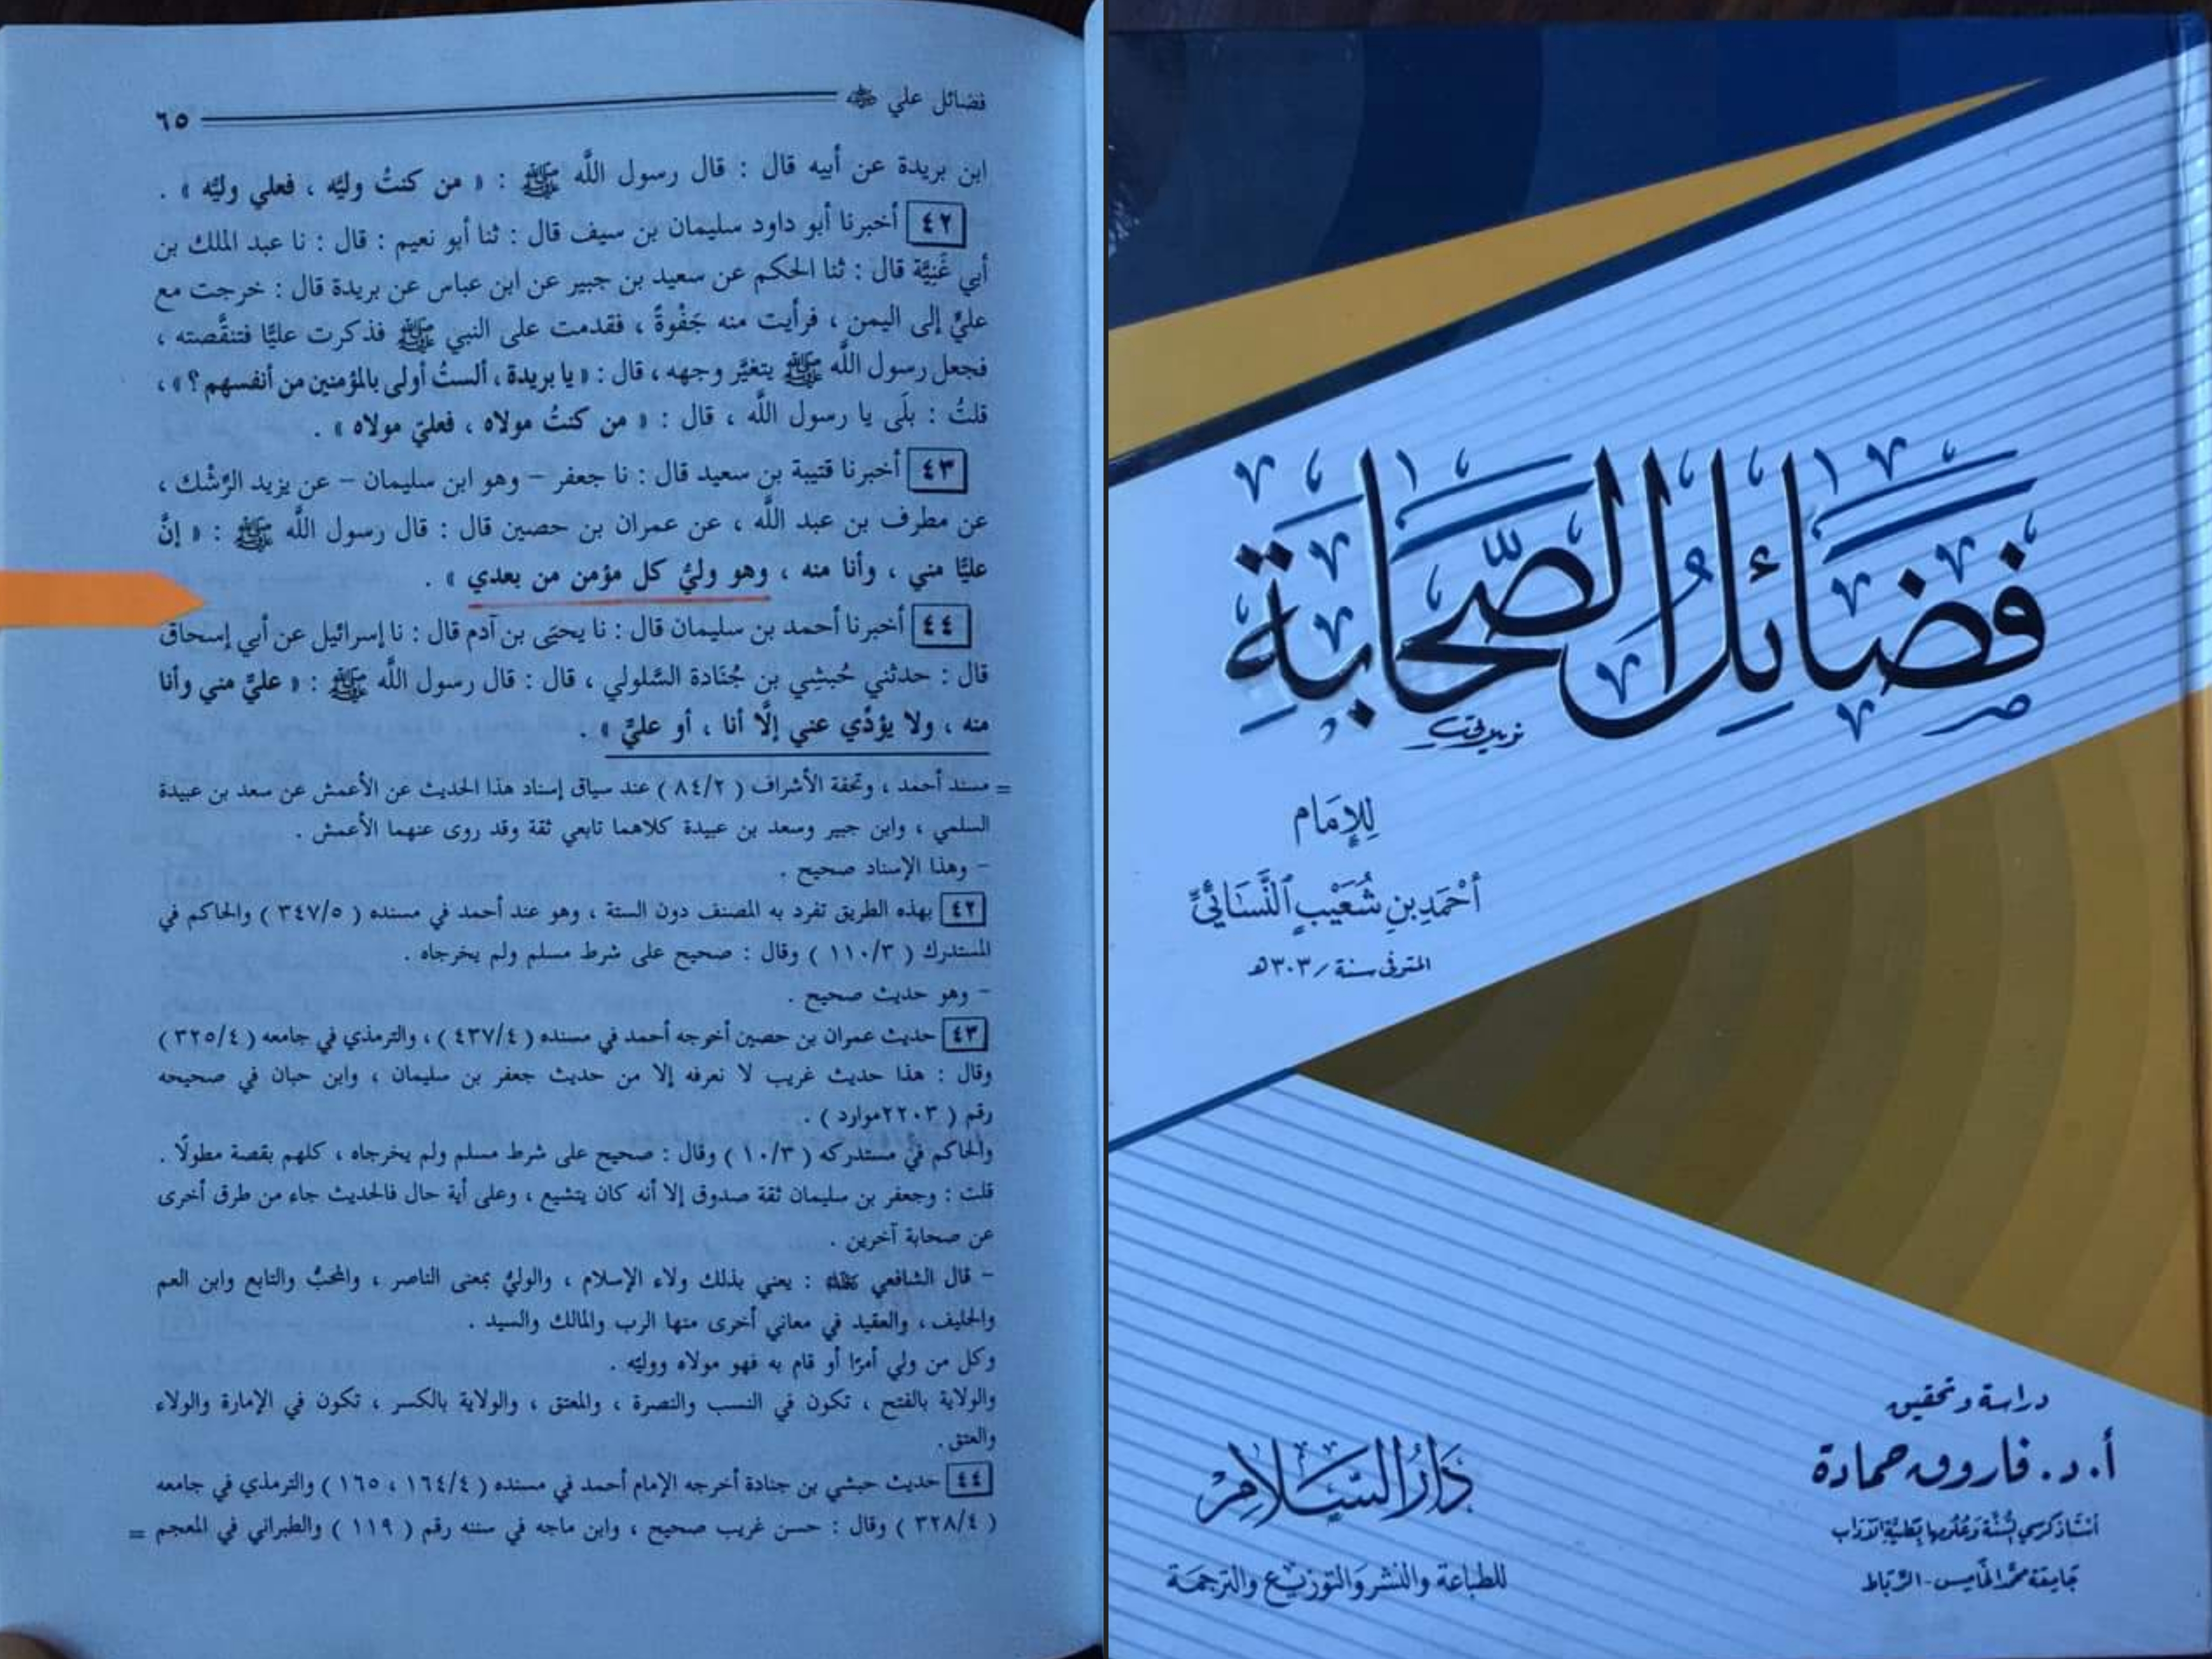 فضائل علي ﵁ ٦٥
ابن بريدة عن أبيه قال : قال رسول اللَّه ﷺ : « من كنتُ وليَّه ، فعلي وليَّه » .
٤٢ أخبرنا أبو داود سليمان بن سيف قال : ثنا أبو نعيم : قال : نا عبد الملك بن
أبي غَنِيَّة قال : ثنا الحكم عن سعيد بن جبير عن ابن عباس عن بريدة قال : خرجت مع
عليٍّ إلى اليمن ، فرأيت منه جَفْوةً ، فقدمت على النبي ﷺ فذكرت عليًّا فتنقَّصته ،
فجعل رسول اللَّه ﷺ يتغيَّر وجهه ، قال : « يا بريدة ، ألستُ أولى بالمؤمنين من أنفسهم ؟ » ،
قلتُ : بلَى يا رسول اللَّه ، قال : « من كنتُ مولاه ، فعليّ مولاه » .
٤٣ أخبرنا قتيبة بن سعيد قال : نا جعفر – وهو ابن سليمان – عن يزيد الرِّشْك ،
عن مطرف بن عبد اللَّه ، عن عمران بن حصين قال : قال رسول اللَّه ﷺ : « إنَّ
عليًّا مني ، وأنا منه ، وهو وليُّ كل مؤمن من بعدي » .
٤٤ أخبرنا أحمد بن سليمان قال : نا يحيَى بن آدم قال : نا إسرائيل عن أبي إسحاق
قال : حدثني حُبشِي بن جُنَادة السَّلولي ، قال : قال رسول اللَّه ﷺ : « عليٌّ مني وأنا
منه ، ولا يؤدِّي عني إلَّا أنا ، أو عليٌّ » .
= مسند أحمد ، وتحفة الأشراف ( ٨٤/٢ ) عند سياق إسناد هذا الحديث عن الأعمش عن سعد بن عبيدة
السلمي ، وابن جبير وسعد بن عبيدة كلاهما تابعي ثقة وقد روى عنهما الأعمش .
– وهذا الإسناد صحيح .
٤٢ بهذه الطريق تفرد به المصنف دون الستة ، وهو عند أحمد في مسنده ( ٣٤٧/٥ ) والحاكم في
المستدرك ( ١١٠/٣ ) وقال : صحيح على شرط مسلم ولم يخرجاه .
– وهو حديث صحيح .
٤٣ حديث عمران بن حصين أخرجه أحمد في مسنده ( ٤٣٧/٤ ) ، والترمذي في جامعه ( ٣٢٥/٤ )
وقال : هذا حديث غريب لا نعرفه إلا من حديث جعفر بن سليمان ، وابن حبان في صحيحه
رقم ( ٢٢٠٣موارد ) .
والحاكم في مستدركه ( ١٠/٣ ) وقال : صحيح على شرط مسلم ولم يخرجاه ، كلهم بقصة مطولًا .
قلت : وجعفر بن سليمان ثقة صدوق إلا أنه كان يتشيع ، وعلى أية حال فالحديث جاء من طرق أخرى
عن صحابة آخرين .
– قال الشافعي ﵀ : يعني بذلك ولاء الإسلام ، والوليُّ بمعنى الناصر ، والمحبُّ والتابع وابن العم
والحليف ، والعقيد في معاني أخرى منها الرب والمالك والسيد .
وكل من ولي أمرًا أو قام به فهو مولاه ووليّه .
والولاية بالفتح ، تكون في النسب والنصرة ، والمعتق ، والولاية بالكسر ، تكون في الإمارة والولاء
والعتق .
٤٤ حديث حبشي بن جنادة أخرجه الإمام أحمد في مسنده ( ١٦٤/٤ ، ١٦٥ ) والترمذي في جامعه
( ٣٢٨/٤ ) وقال : حسن غريب صحيح ، وابن ماجه في سننه رقم ( ١١٩ ) والطبراني في المعجم =
فَضَائِلُ الصَّحَابَةِ
لِلإِمَام
أَحْمَد بن شُعَيْب النَّسَائِيِّ
المتوفى سنة / ٣٠٣هـ
دراسة وتحقيق
أ. د. فاروق حمادة
أستاذ كرسي السنة وعلومها بكلية الآداب
جامعة محمد الخامس - الرباط
دَارُ السَّلَام
للطباعة والنشر والتوزيع والترجمة